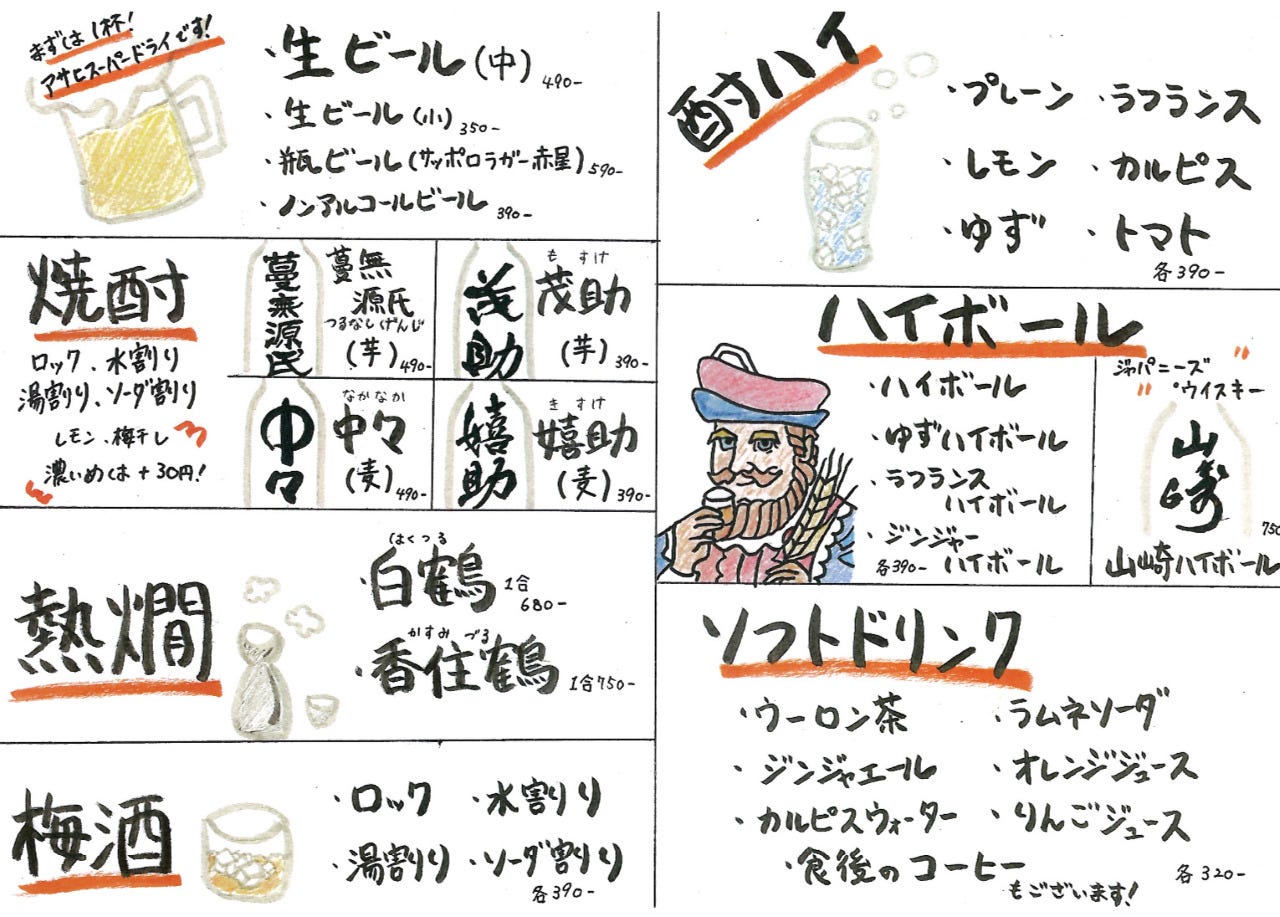 まずは1杯!
アサヒスーパードライです!
・生ビール(中) 490-
・生ビール(小) 350-
・瓶ビール(サッポロラガー赤星) 590-
・ノンアルコールビール 390-
焼酎
ロック、水割り
湯割り、ソーダ割り
レモン、梅干し
濃いめは+30円!
蔓無源氏
蔓無
源氏
つるなしげんじ
(芋) 490-
茂助
もすけ
茂助
(芋) 390-
中々
なかなか
中々
(麦) 490-
嬉助
きすけ
嬉助
(麦) 390-
熱燗
はくつる
・白鶴 1合 680-
かすみづる
・香住鶴 1合750-
梅酒
・ロック ・水割り
・湯割り ・ソーダ割り
各390-
酎ハイ
・プレーン ・ラフランス
・レモン ・カルピス
・ゆず ・トマト
各390-
ハイボール
・ハイボール
・ゆずハイボール
・ラフランス
ハイボール
・ジンジャー
ハイボール
各390-
ジャパニーズ
・ウイスキー
山崎
750
山崎ハイボール
ソフトドリンク
・ウーロン茶 ・ラムネソーダ
・ジンジャエール ・オレンジジュース
・カルピスウォーター ・りんごジュース
・食後のコーヒー
もございます!
各320-